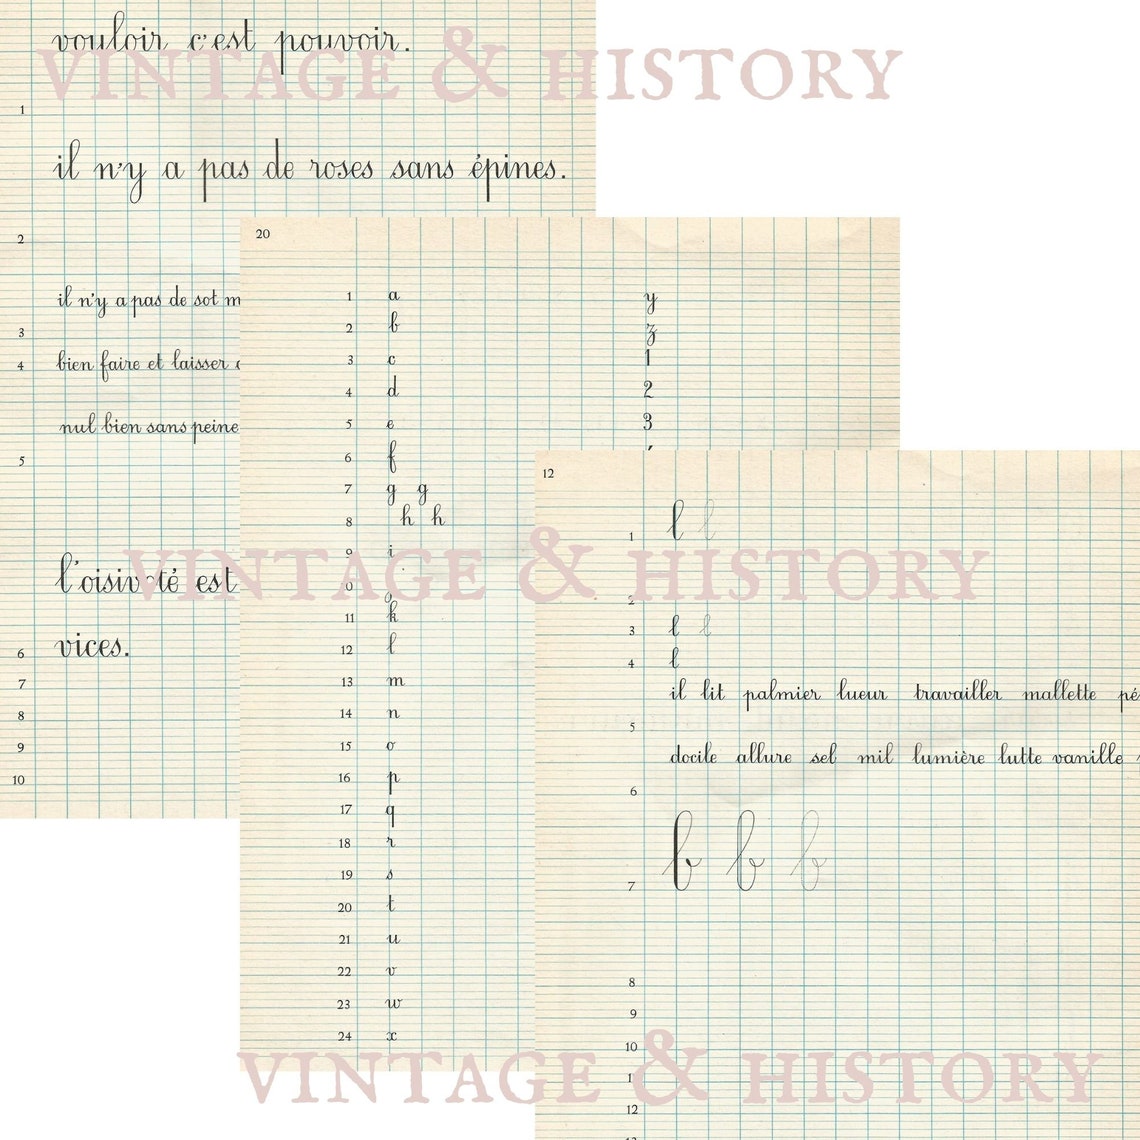 vouloir c'est pouvoir.
VINTAGE & HISTORY
1
il n'y a pas de roses sans épines.
2
il n'y a pas de sot m
3
4 bien faire et laisser
nul bien sans peine
5
l'oisiveté est
6 vices.
7
8
9
10
20
1 a y
2 b z
3 c 1
4 d 2
5 e 3
6 f
7 g g
8 h h
9 i
0
11 k
12 l
13 m
14 n
15 o
16 p
17 q
18 r
19 s
20 t
21 u
22 v
23 w
24 x
VINTAGE & HISTORY
12
1 l l
2
3 l l
4 l
il lit palmier lueur travailler mallette pé
5
docile allure sel mil lumière lutte vanille
6
7 b b b
8
9
10
1
12
VINTAGE & HISTORY